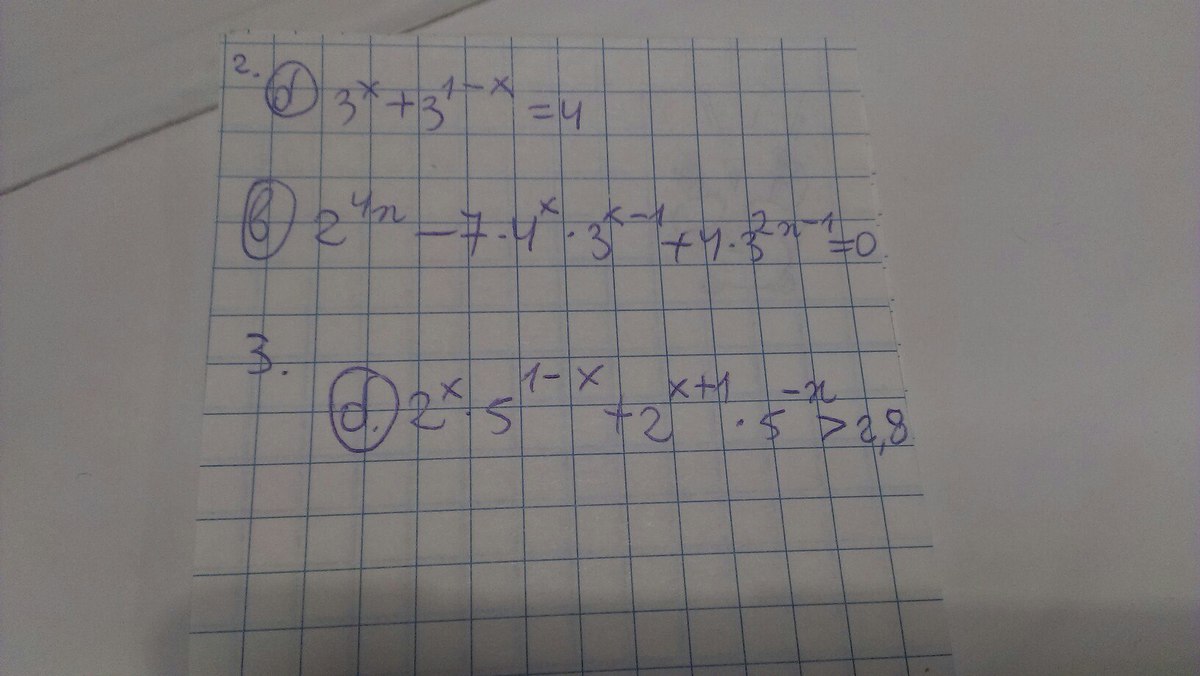 2. б 3^x + 3^{1-x} = 4
в 2^{4x} - 7 · 4^x · 3^{x-1} + 4 · 3^{2x-1} = 0
3.
б. 2^x · 5^{1-x} + 2^{x+1} · 5^{-x} > 2,8